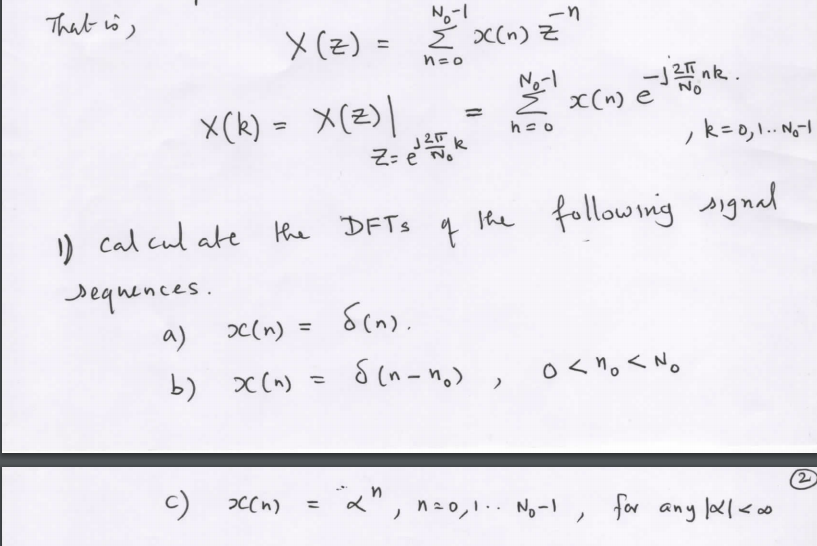 That is,
X(z) = Σ_{n=0}^{N₀-1} x(n) z^{-n}
X(k) = X(z)|_{z=e^{j(2π/N₀)k}} = Σ_{n=0}^{N₀-1} x(n) e^{-j(2π/N₀)nk}. , k=0,1..N₀-1
1) calculate the DFTs of the following signal
sequences.
a) x(n) = δ(n).
b) x(n) = δ(n-n₀) , 0 < n₀ < N₀
2
c) x(n) = α^n, n=0,1.. N₀-1, for any |α|<∞